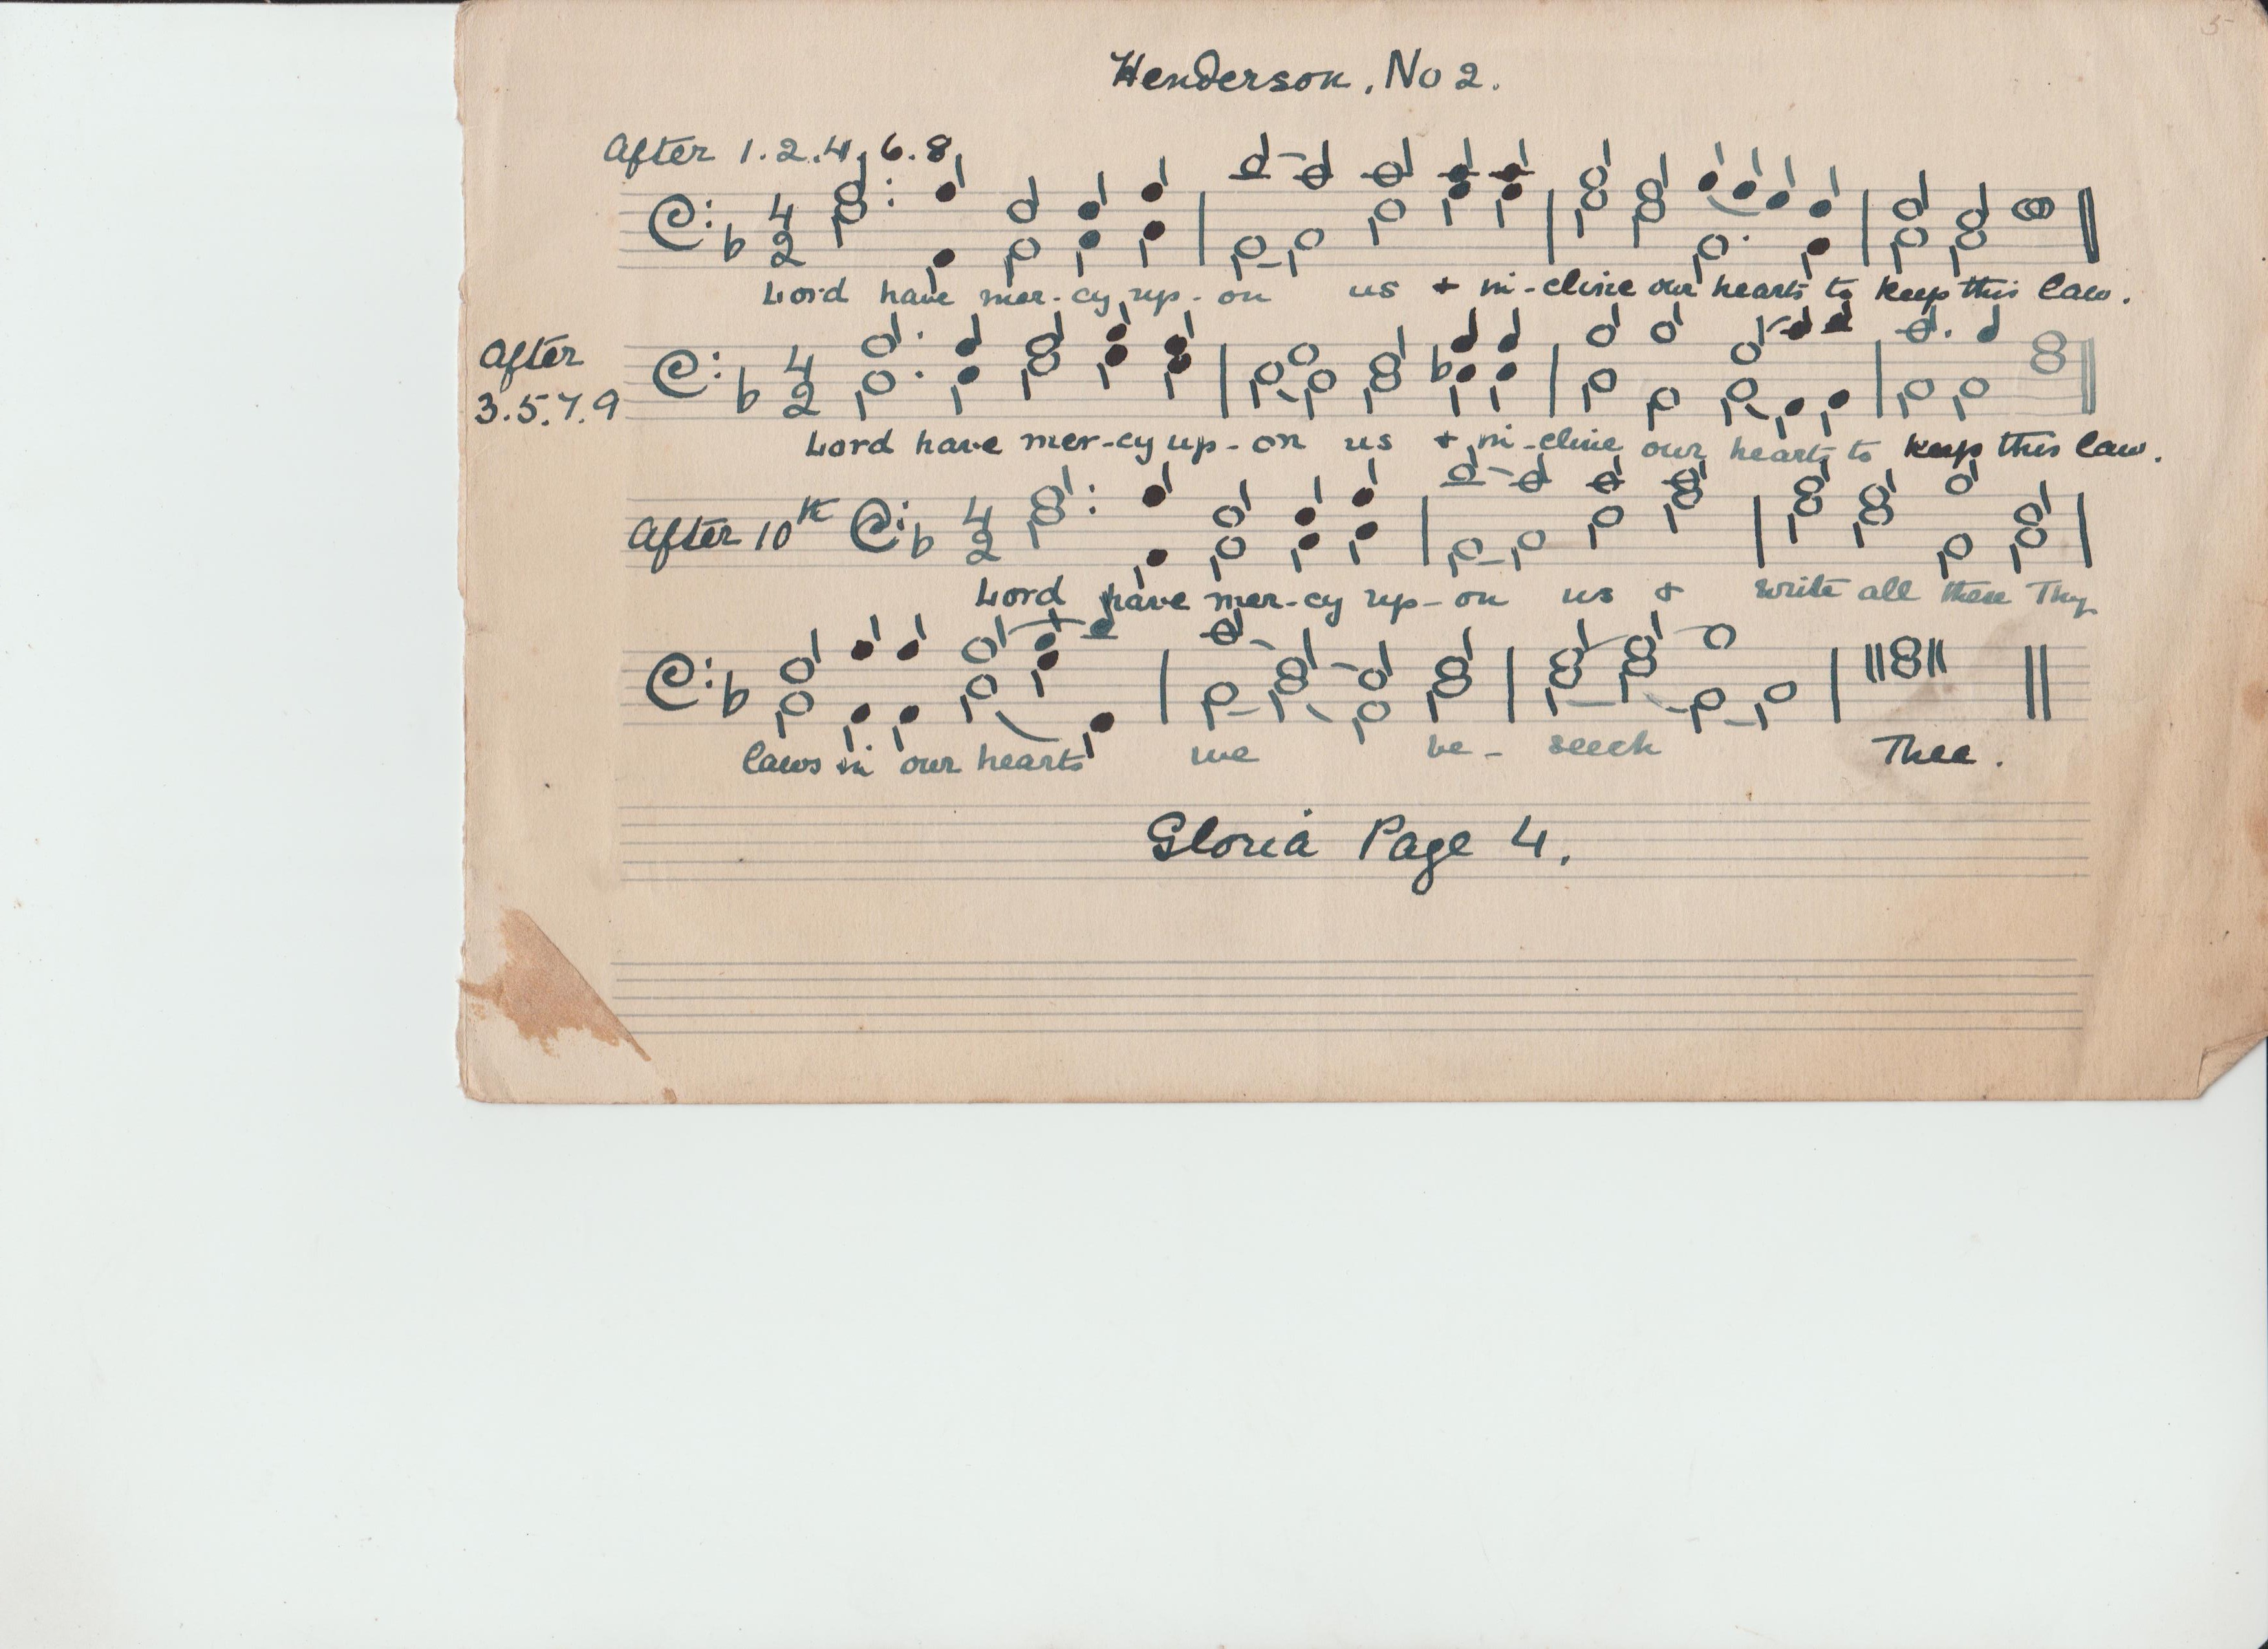 5
Henderson. No 2.
After 1.2.4. 6.8
4
2
Lord have mer-cy up-on us + in-cline our hearts to keep this law.
After
3.5.7.9
4
2
Lord have mer-cy up-on us + in-cline our hearts to keep this law.
After 10th
4
2
Lord have mer-cy up-on us + write all these Thy
laws in our hearts we be- seech Thee.
Gloria Page 4.